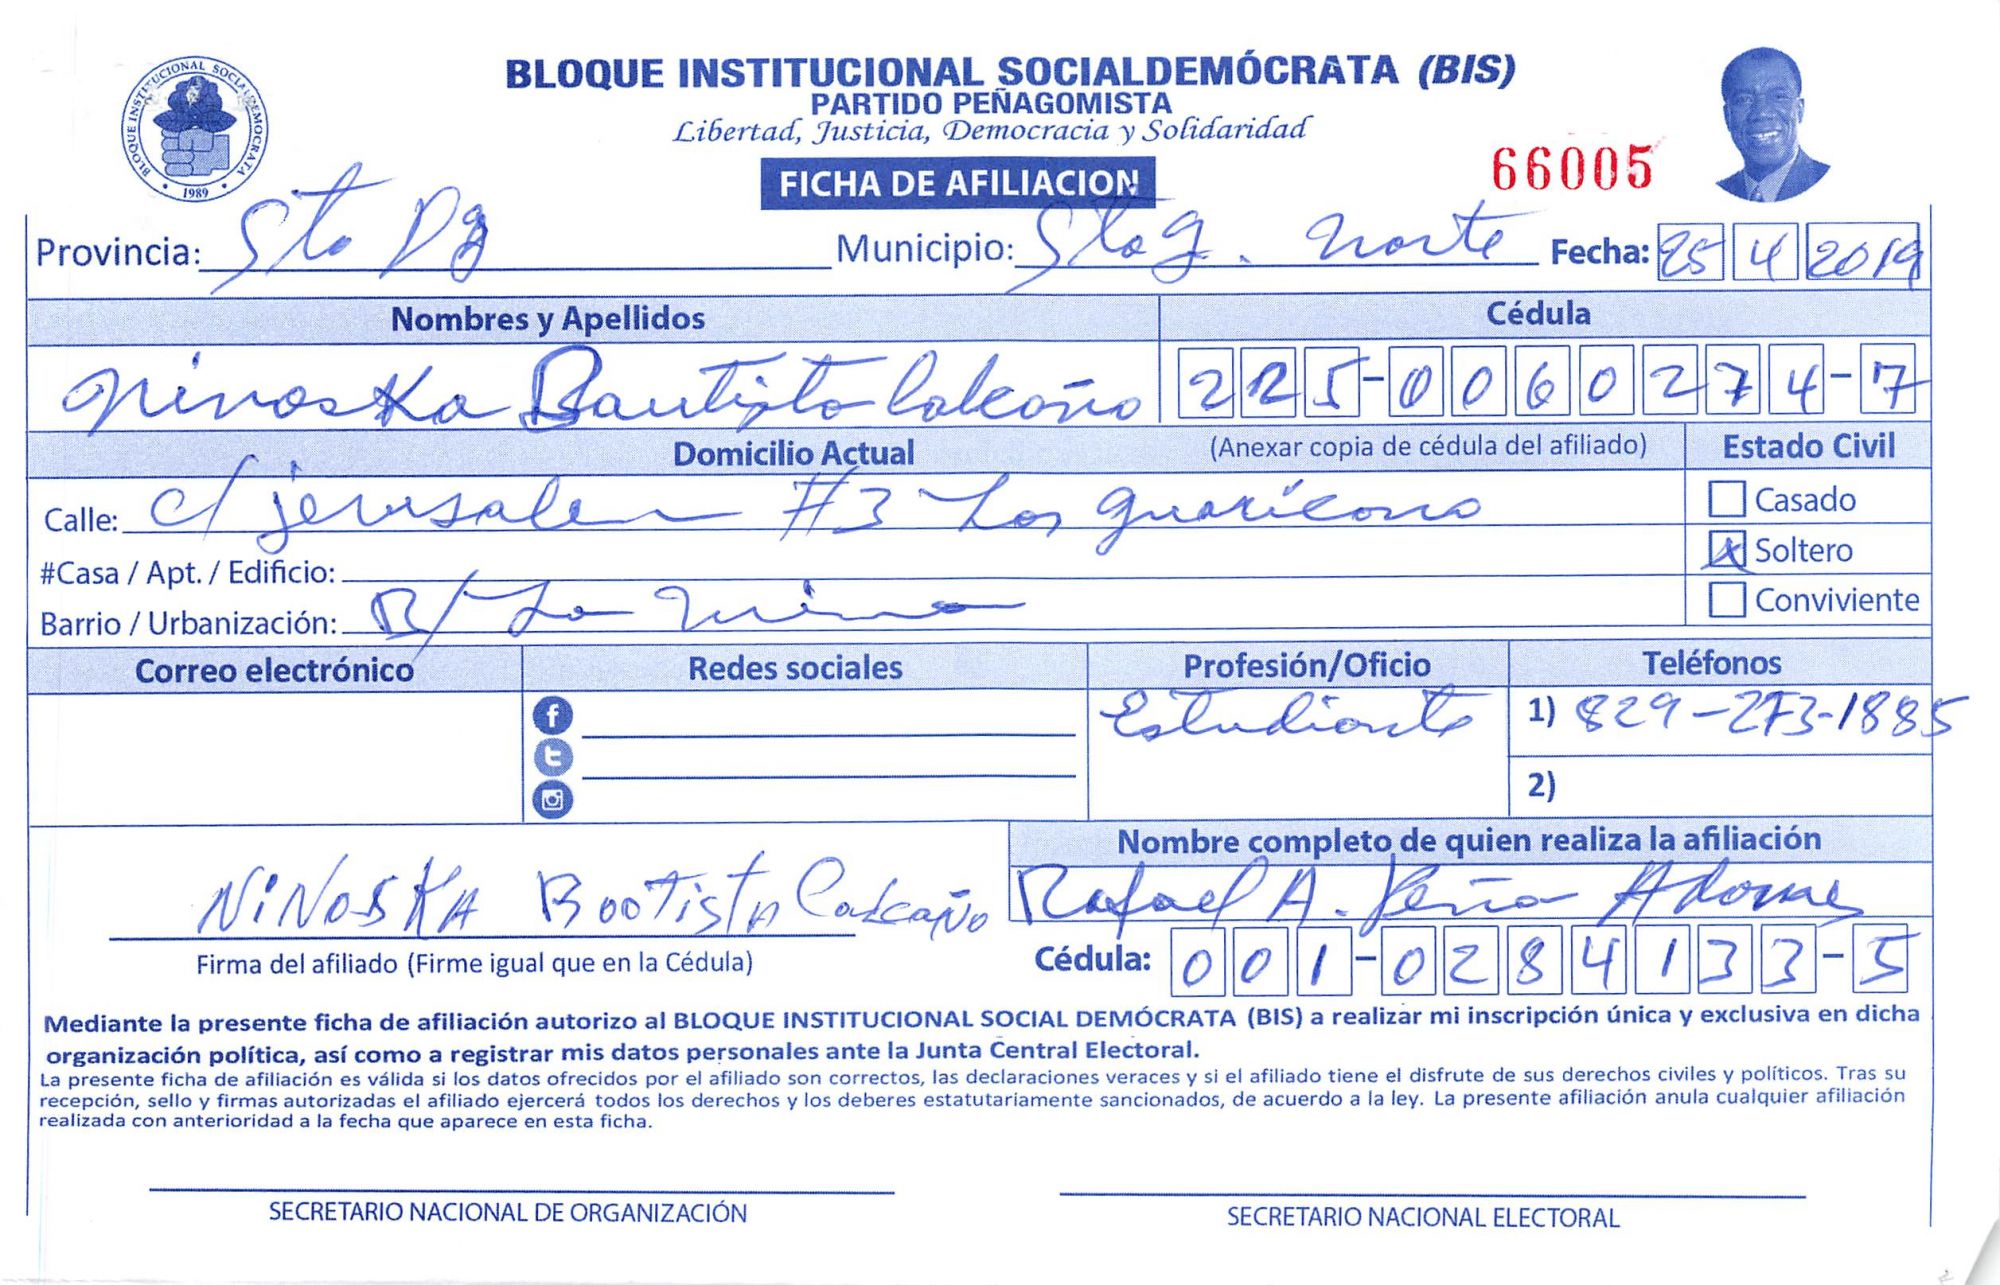 BLOQUE INSTITUCIONAL SOCIALDEMÓCRATA (BIS)
PARTIDO PEÑAGOMISTA
Libertad, Justicia, Democracia y Solidaridad
BLOQUE INSTITUCIONAL SOCIALDEMOCRATA
1989
FICHA DE AFILIACION
66005
Provincia: Sto Dg Municipio: Sto g. norte Fecha: 25 4 2019
Nombres y Apellidos Cédula
Ninoska Bautista Calcaño 225-0060274-7
Domicilio Actual (Anexar copia de cédula del afiliado) Estado Civil
Calle: c/ jerusalen #3 Los guaricano Casado
#Casa / Apt. / Edificio: X Soltero
Barrio / Urbanización: B/ La mina Conviviente
Correo electrónico Redes sociales Profesión/Oficio Teléfonos
Estudiante 1) 829-273-1885
2)
Nombre completo de quien realiza la afiliación
NiNOSKA Bootista Calcaño Rafael A. Peña Adames
Firma del afiliado (Firme igual que en la Cédula) Cédula: 001-0284133-5
Mediante la presente ficha de afiliación autorizo al BLOQUE INSTITUCIONAL SOCIAL DEMÓCRATA (BIS) a realizar mi inscripción única y exclusiva en dicha
organización política, así como a registrar mis datos personales ante la Junta Central Electoral.
La presente ficha de afiliación es válida si los datos ofrecidos por el afiliado son correctos, las declaraciones veraces y si el afiliado tiene el disfrute de sus derechos civiles y políticos. Tras su
recepción, sello y firmas autorizadas el afiliado ejercerá todos los derechos y los deberes estatutariamente sancionados, de acuerdo a la ley. La presente afiliación anula cualquier afiliación
realizada con anterioridad a la fecha que aparece en esta ficha.
SECRETARIO NACIONAL DE ORGANIZACIÓN SECRETARIO NACIONAL ELECTORAL